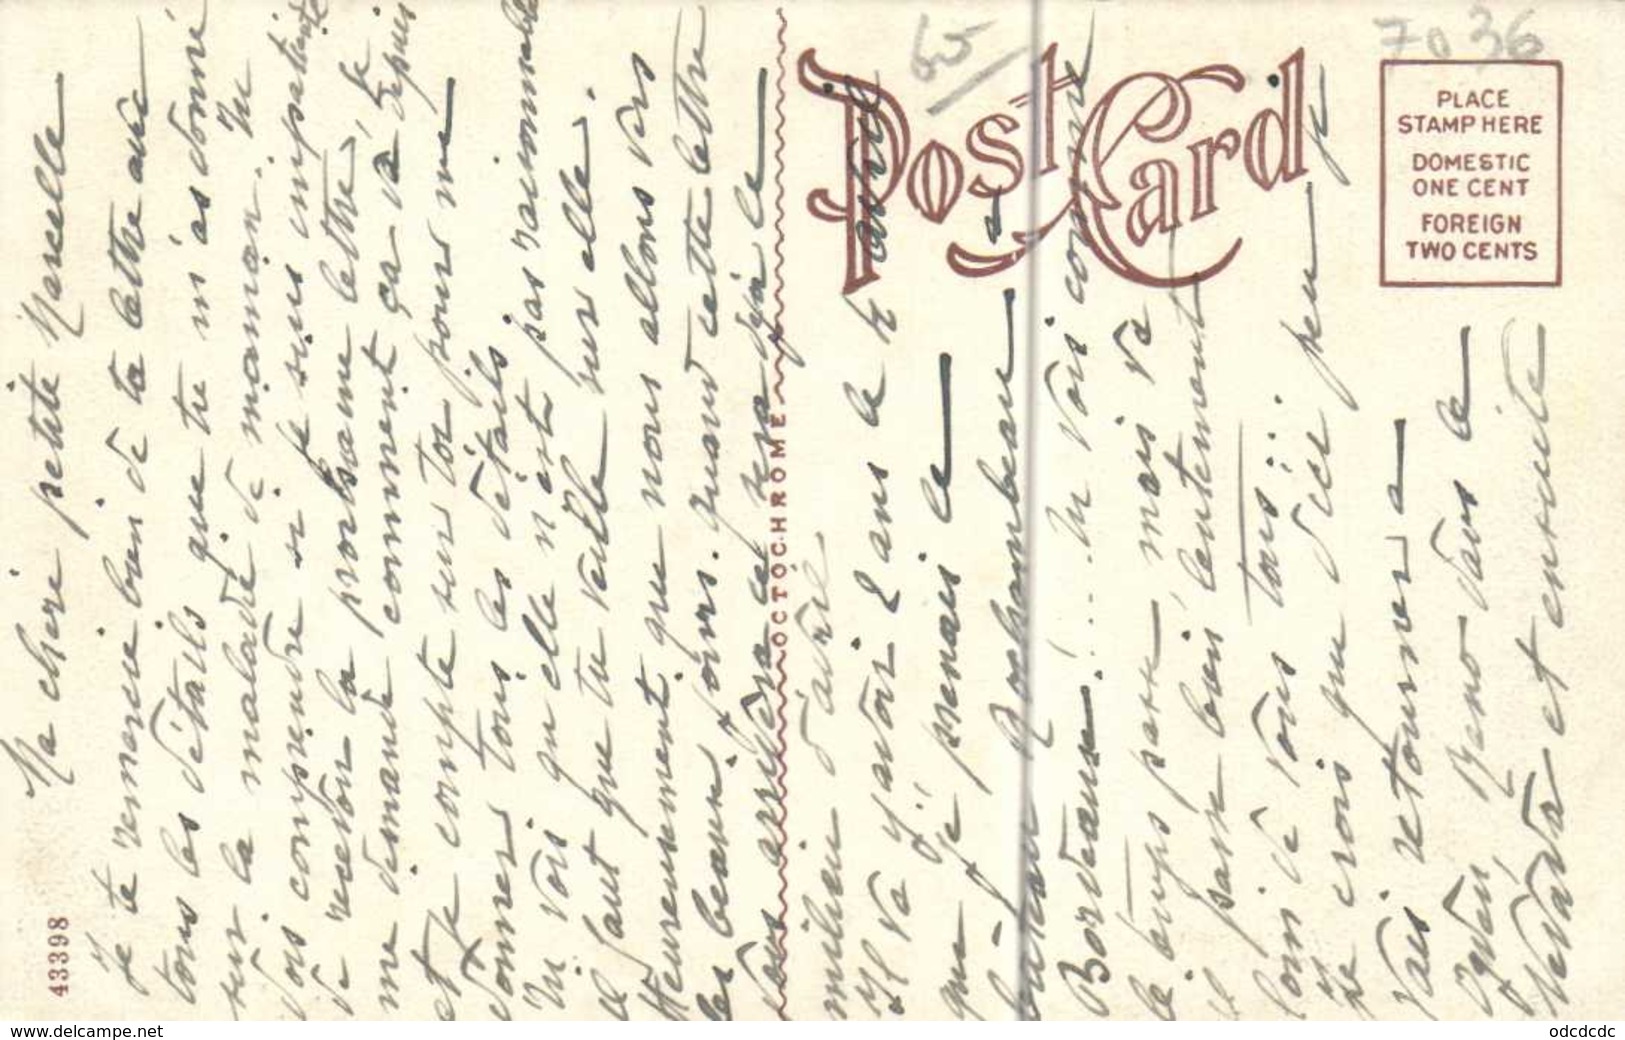 43398
Ma chère petite Marcelle
Je te remercie bien de ta lettre avec
tous les détails que tu m'as donné
sur la maladie de maman. Tu
dois comprendre si je suis impatiente
de recevoir la prochaine lettre. Je
me demande comment ça va depuis
et je compte sur toi pour me
donner tous les détails
Tu vois qu'elle n'est pas raisonnable
il faut que tu veille sur elle.
Heureusement que nous allons vers
les beaux jours. quand cette lettre
vous arrivera ce sera déjà le
milieu d'avril
Il va y avoir 2 ans le 4 avril
que je prenais le
bateau Rochambeau a
Bordeaux!... tu vois comme
le temps passe mais va
il passe bien lentement
loin de vous tous!..
Je crois que d'ici peu je
vais retourner a
Reno dans le
Nevada et ensuite
OCTOCHROME
Post Card
65
7036
PLACE
STAMP HERE
DOMESTIC
ONE CENT
FOREIGN
TWO CENTS
www.delcampe.net
odcdcdc